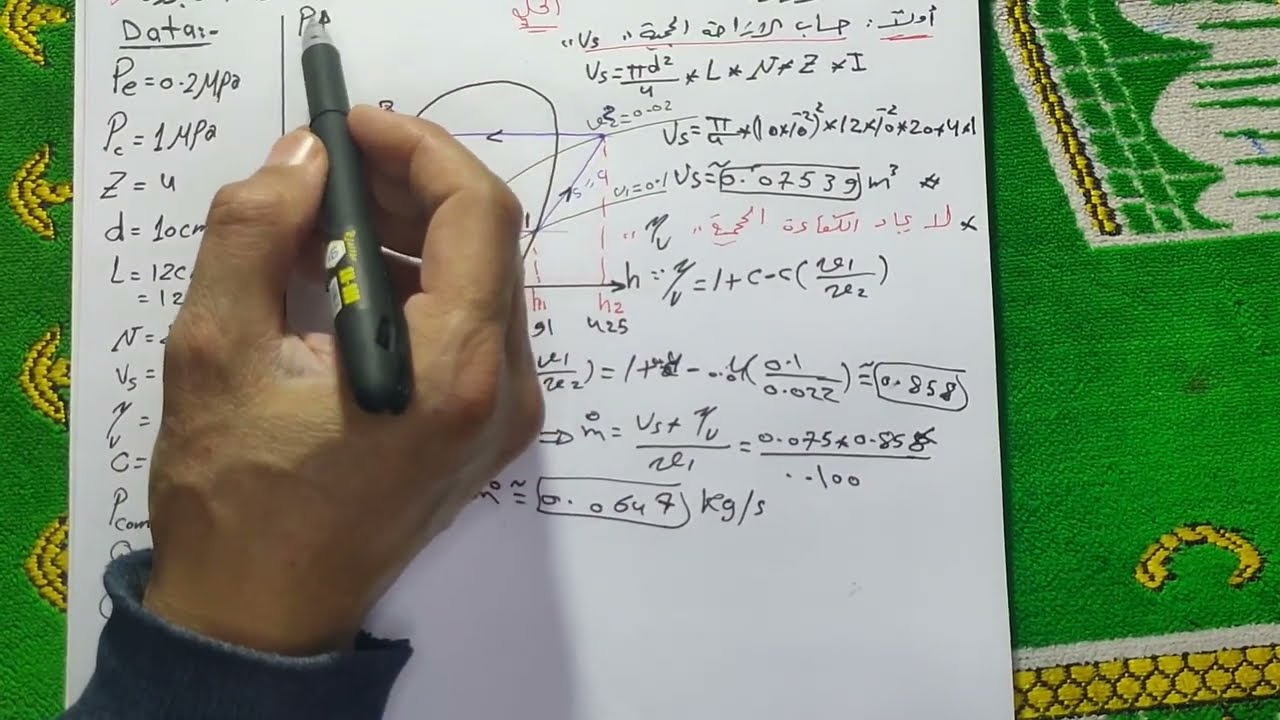 Data:-
Pe = 0.2 Mpa
Pc = 1 Mpa
Z = 4
d = 10cm
L = 12c
= 12
N =
Vs =
η_v =
C =
Pcom
P
2
v2=0.02
v1=0.1
1
h
h1
h2
91
425
الحل
أولاً: حساب الازاحة الحجمية "Vs"
Vs = πd²/4 * L * N * Z * I
Vs = π/4 * (10*10⁻²)² * 12*10⁻² * 20*4*1
Vs ≅ 0.07539 m³ *
* لايجاد الكفاءة الحجمية "η_v"
∵ η_v = 1 + C - C(v1/v2)
v1/v2) = 1+ - 0.04(0.1/0.022) ≅ 0.858
⇒ ṁ = Vs * η_v / v1 = 0.075*0.858 / 0.100
ṁ ≅ 0.0647 kg/s